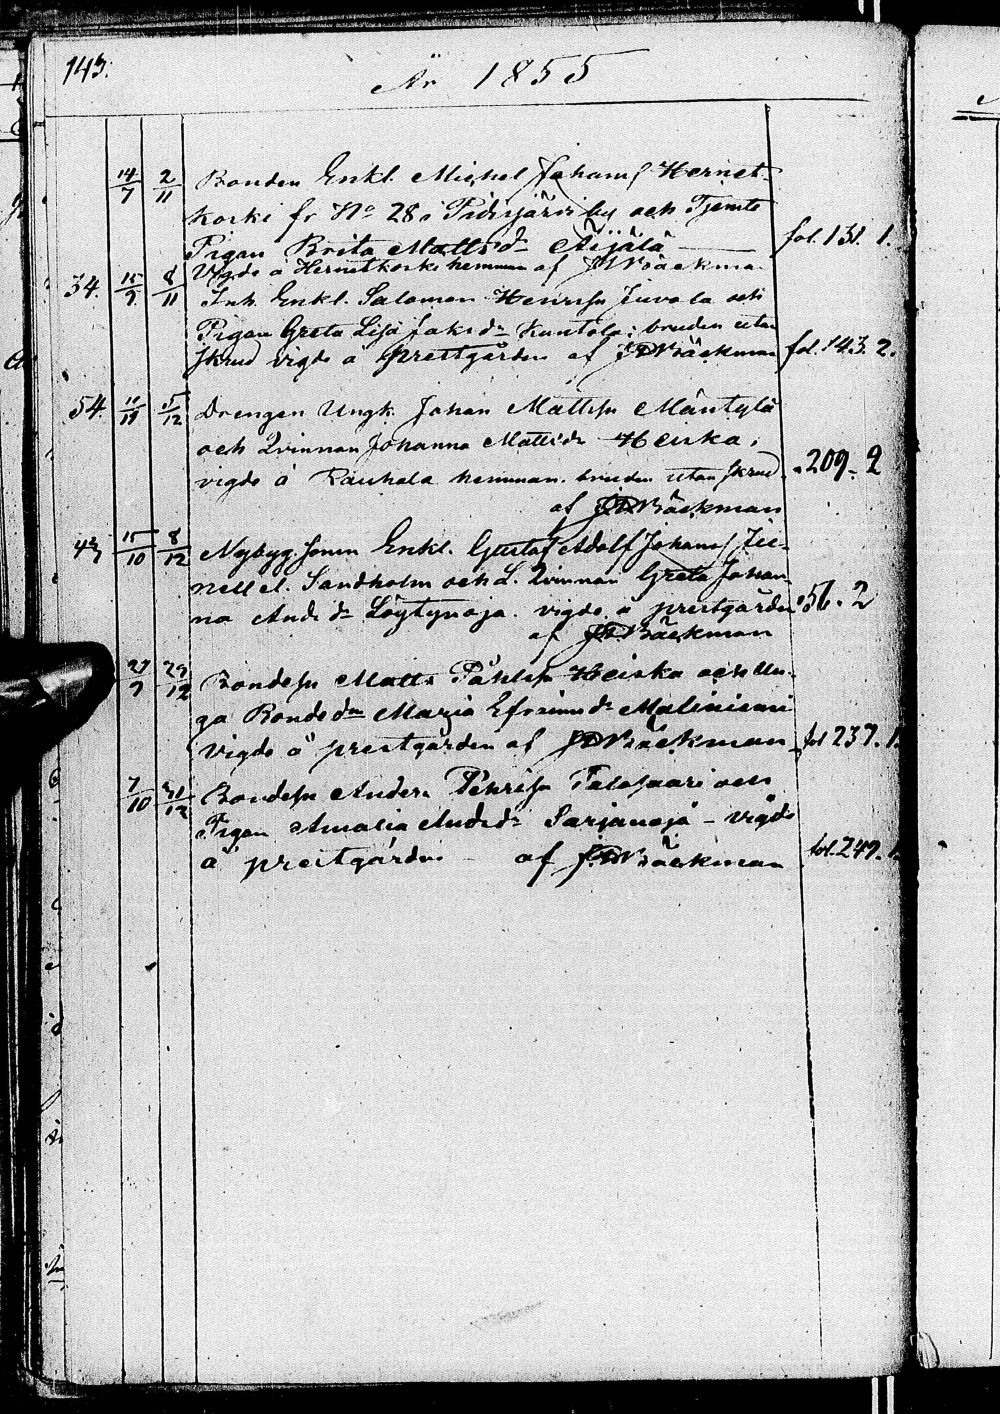 143.
År 1855
14/7 2/11 Bonden Enkl. Michel Johans Hernet-
koski fr No 28 i Pidisjärvi by och Tjenste
Pigan Brita Mattsdr Äijälä fol. 131. 1.
Vigde å Hernetkoski hemman af JDBäckman
34. 15/9 8/11 Inh. Enkl. Salomon Henrisn Juvola och
Pigan Greta Lisa Jaksdr Kuntola; bruden utan
skrud vigde å prestgården af JDBäckman fol. 143. 2.
54. 11/11 15/12 Drengen Ungk. Johan Mattssn Mäntylä
och Qvinnan Johanna Mattsdr Heiska;
vigde å Rauhala hemman. bruden utan skrud. " 209. 2
af JDBäckman
43 15/10 8/12 Nybygg. sonen Enkl. Gustaf Adolf Johans
nell el. Sandholm och L. Qvinnan Greta Johan-
na Andsdr Löytynoja. vigde å prestgården " 56. 2
af JDBäckman
27/9 29/12 Bondesn Matts Påhlsn Heiska och Un-
ga Bondedn Maria Efraimsdr Maliniemi
vigde å prestgården af JDBäckman fol 237. 1.
7/10 31/12 Bondesn Anders Pehrsn Palosaari och
Pigan Amalia Andsdr Sarjanoja - vigde
å prestgården - af JDBäckman fol. 249. 1.